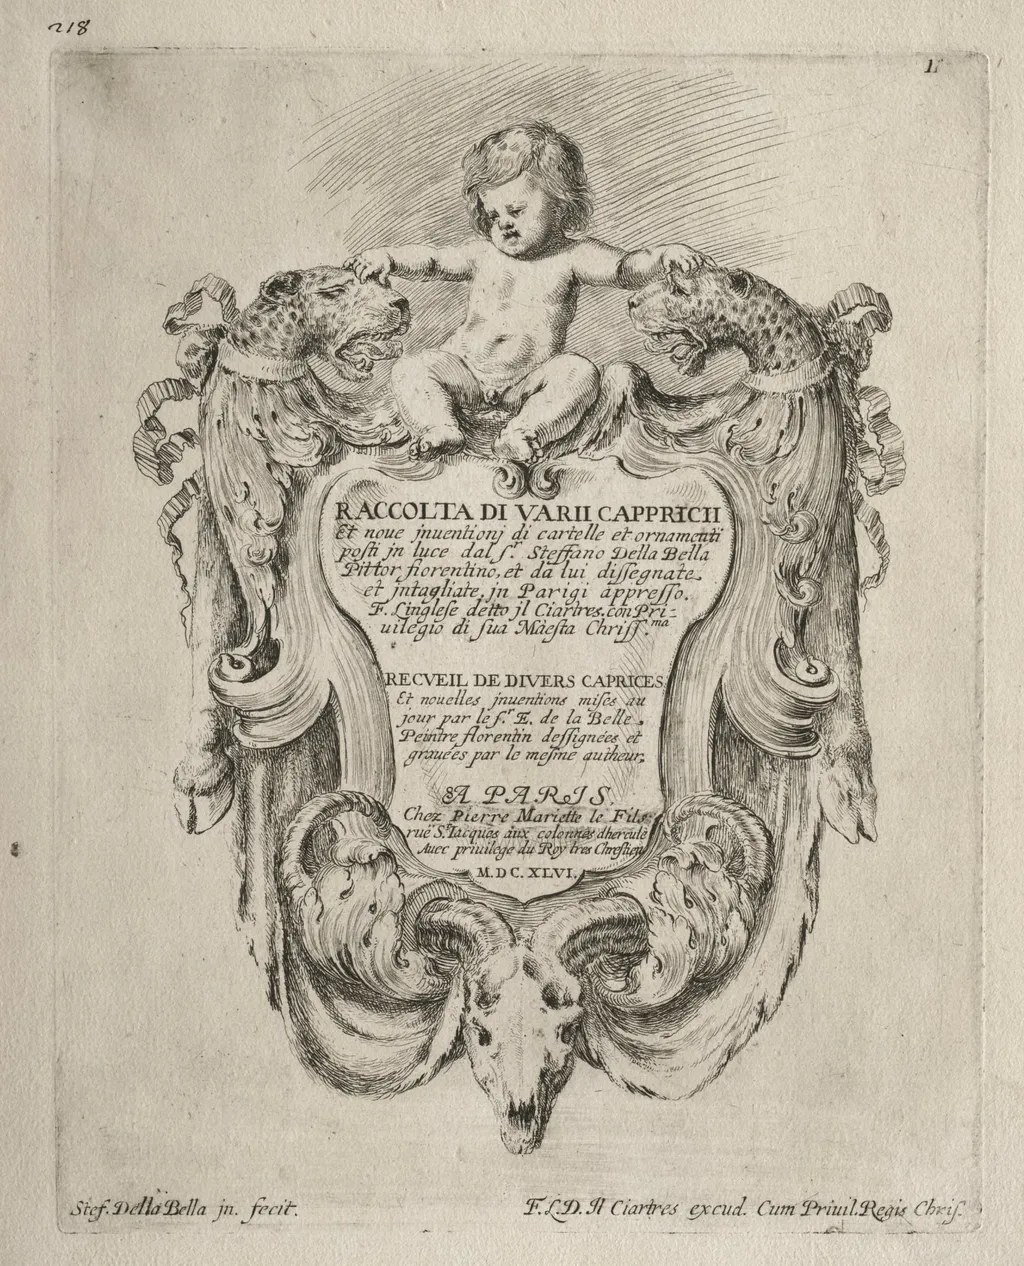 218
1
RACCOLTA DI VARII CAPPRICII
Et noue jnuentionj di cartelle et ornamenti
posti jn luce dal s.r Steffano Della Bella
Pittor fiorentino, et da lui dissegnate
et jntagliate, jn Parigi appresso.
F. Linglese detto jl Ciartres. con Pri-
uilegio di sua Màesta Chriss.ma
RECVEIL DE DIVERS CAPRICES
Et nouelles jnuentions mises au
jour par le s.r E. de la Belle.
Peintre florentin dessignées et
grauées par le mesme autheur.
A PARIS.
Chez Pierre Mariette le Fils
rue S.t Iacques aux colonnes dhercule
Auec priuilege du Roy tres Chrestien
M.D C. XLVI.
Stef. Della Bella jn. fecit.
F.L.D. Il Ciartres excud. Cum Priuil. Regis Chris.